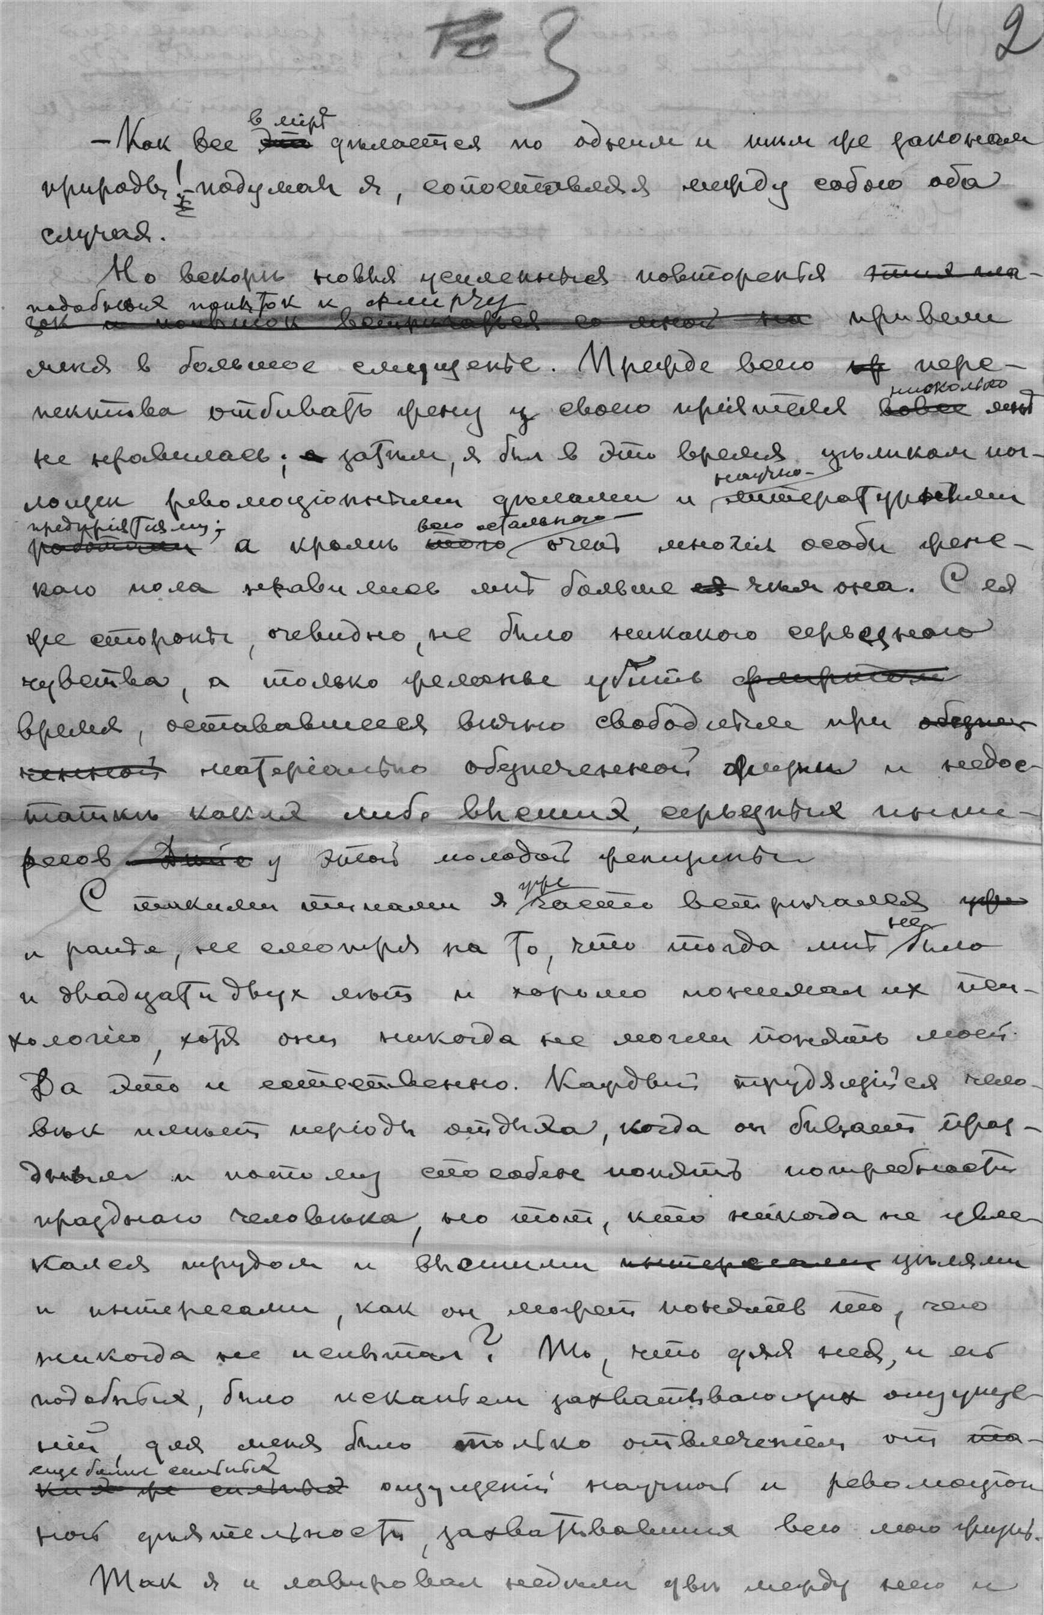 3
2
в мірѣ
— Как все это дѣлается по одним и тѣм же законам
природы! — подумал я, сопоставляя между собою оба
случая.
Но вскорѣ новыя усиленныя повторенья этих
подобных попыток к флирту
и попыток встрѣчаться со мной на привели
меня в большое смущенье. Прежде всего пер-
нисколько
спектива отбивать жену у своего пріятеля вовсе мнѣ
не нравилась; а затѣм, я был в это время цѣликом пог-
научно-
лощен революціонными дѣлами и литературными
предпріятіями;
работами а кромѣ
всего остального
того очень многія особы жен-
скаго пола нравились мнѣ больше ея чѣм она. С ея
же стороны, очевидно, не было никакого серьезнаго
чувства, а только желанье убить флиртом
время, остававшееся вѣчно свободным при обезпе-
ченной матеріально обезпеченной жизни и недос-
таткѣ каких либо высших, серьезных инте-
ресов у этой молодой женщины.
уже
С такими типами я часто встрѣчался уже
не
и ранѣе, не смотря на то, что тогда мнѣ было
и двадцати двух лѣт и хорошо понимал их пси-
хологію, хотя они никогда не могли понять моей.
Да это и естественно. Каждый трудящійся чело-
вѣк имѣет періоды отдыха, когда он бывает праз-
дным и потому способен понять потребности
празднаго человѣка, но тот, кто никогда не увле-
кался трудом и высшими интересами цѣлями
и интересами, как он может понять то, чего
никогда не испытал? То, что для нея, и ей
подобных, было исканьем захватывающих ощуще-
ній, для меня было только отвлеченіем от та-
еще болѣе сильных
ких же сильных ощущеній научной и революціон
ной дѣятельности, захватывавшия всю мою жизнь.
Так я и лавировал недѣли двѣ между нею и